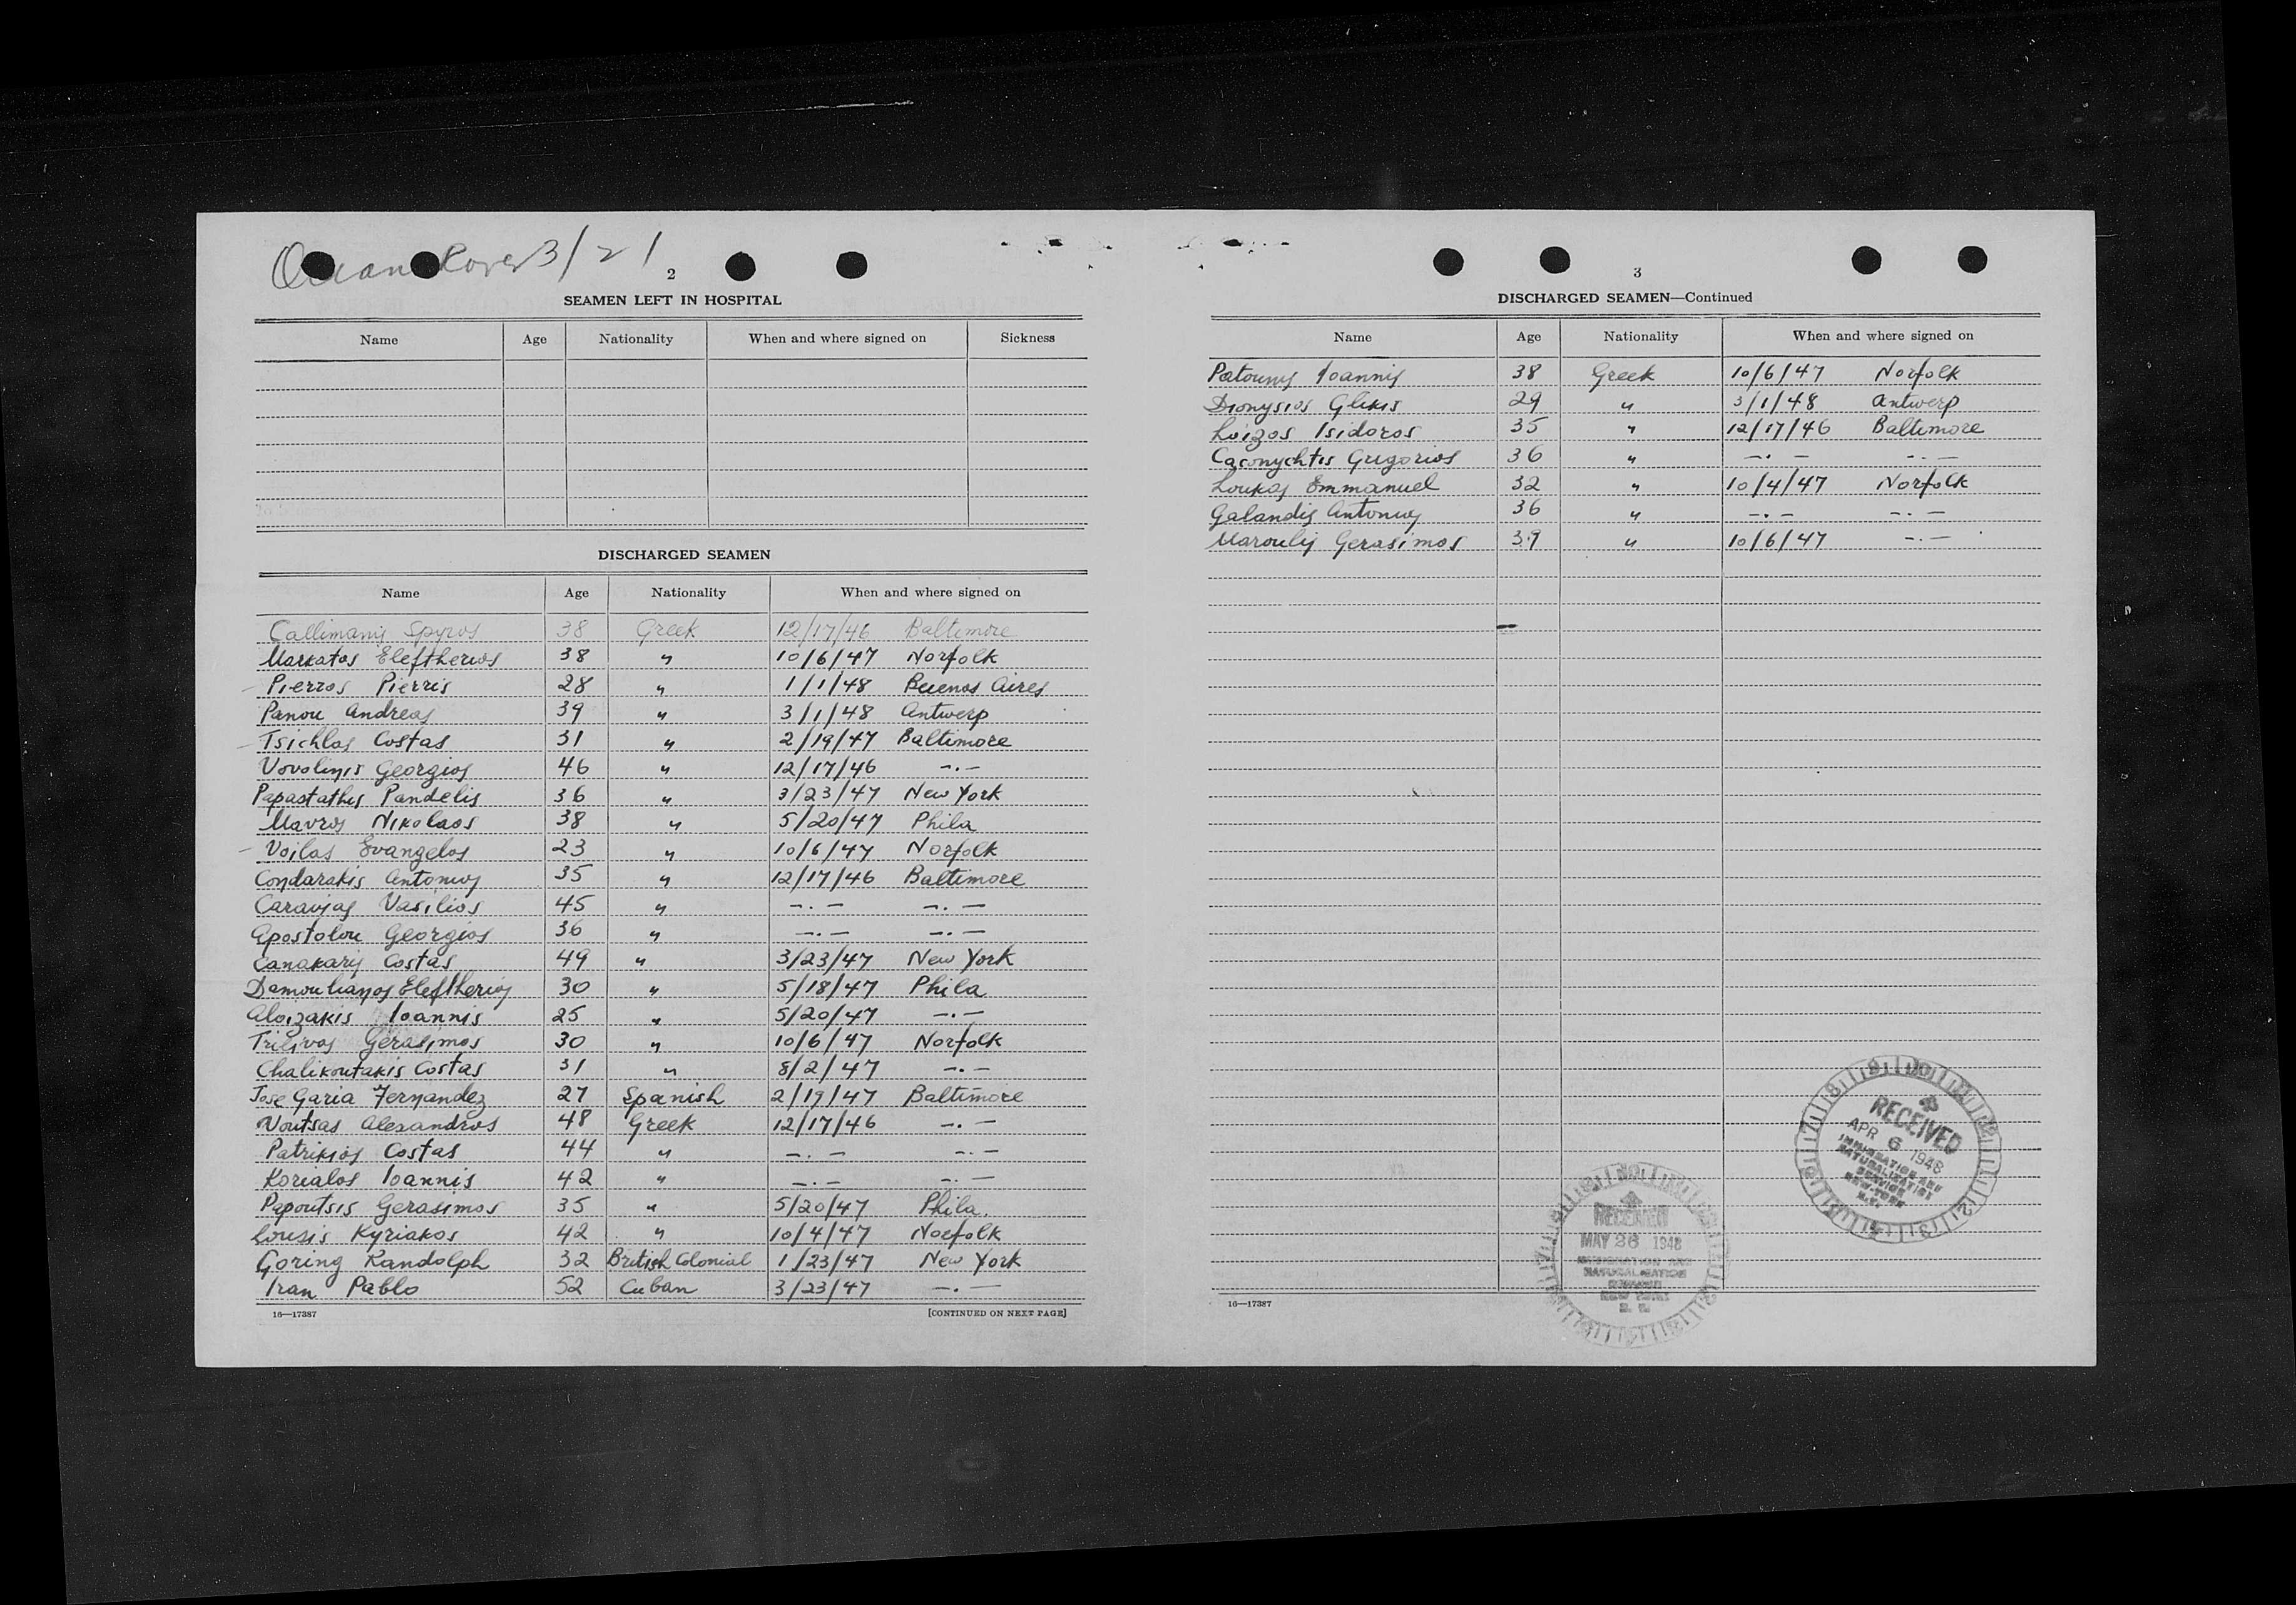 Ocean Rover 3/21
2
SEAMEN LEFT IN HOSPITAL
Name Age Nationality When and where signed on Sickness
DISCHARGED SEAMEN
Name Age Nationality When and where signed on
Callimanis Spyros 38 Greek 12/17/46 Baltimore
Markatos Eleftherios 38 " 10/6/47 Norfolk
Pierros Pierris 28 " 1/1/48 Buenos Aires
Panou Andreas 39 " 3/1/48 Antwerp
Tsichlas Costas 31 " 2/19/47 Baltimore
Vovolinis Georgios 46 " 12/17/46 -.-
Papastathis Pandelis 36 " 3/23/47 New York
Mavros Nikolaos 38 " 5/20/47 Phila
Voilas Evangelos 23 " 10/6/47 Norfolk
Condarakis Antonios 35 " 12/17/46 Baltimore
Caravias Vasilios 45 " -.- -.-
Apostolou Georgios 36 " -.- -.-
Canakaris Costas 49 " 3/23/47 New York
Damoulianos Eleftherios 30 " 5/18/47 Phila
Aloizakis Ioannis 25 " 5/20/47 -.-
Trilivas Gerasimos 30 " 10/6/47 Norfolk
Chalikoutakis Costas 31 " 8/2/47 -.-
Jose Garia Fernandez 27 Spanish 2/19/47 Baltimore
Voutsas Alexandros 48 Greek 12/17/46 -.-
Patrikios Costas 44 " -.- -.-
Korialos Ioannis 42 " -.- -.-
Papoutsis Gerasimos 35 " 5/20/47 Phila.
Lousis Kyriakos 42 " 10/4/47 Norfolk
Goring Randolph 32 British Colonial 1/23/47 New York
Iran Pablo 52 Cuban 3/23/47 -.-
16—17387 [CONTINUED ON NEXT PAGE]
3
DISCHARGED SEAMEN—Continued
Name Age Nationality When and where signed on
Patounis Ioannis 38 Greek 10/6/47 Norfolk
Dionysios Glikis 29 " 3/1/48 Antwerp
Loizos Isidoros 35 " 12/17/46 Baltimore
Caconychtis Grigorios 36 " -.- -.-
Loukas Emmanuel 32 " 10/4/47 Norfolk
Galandis Antonios 36 " -.- -.-
Maroulis Gerasimos 39 " 10/6/47 -.-
RECEIVED
APR 6 1948
IMMIGRATION AND
NATURALIZATION
SERVICE
NEW YORK
N.Y.
RECEIVED
MAY 26 1948
IMMIGRATION AND
NATURALIZATION
SERVICE
NEW YORK
N. Y.
16—17387